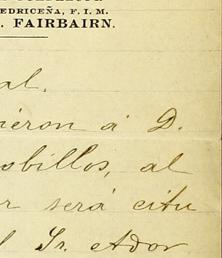 EDRICEÑA, F. I. M.
. FAIRBAIRN.
al.
ieron á D.
obillos, al
r será citu
l Sr. Ador